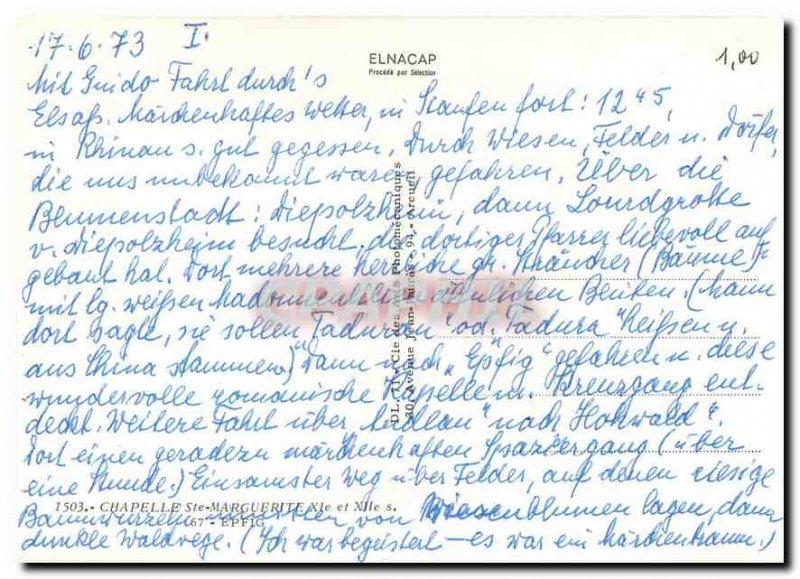 17.6.73 I.
ELNACAP
Procédé par Sélection
1,00
Mit Guido Fahrt durch's
Elsaß. Märchenhaftes Wetter, in Staufen fort: 12 45,
in Rhinau s. gut gegessen. Durch Wiesen, Felder u. Dörfer,
die uns unbekannt waren, gefahren. Über die
Blumenstadt: Diepolzheim, dann Lourdgrotte
v. Diepolzheim besucht. die dortiger Pfarrer liebevoll auf
gebaut hat. Dort mehrere herrliche gr. Sträucher (Bäume)
mit lg. weißen Madonnenlilien ähnlichen Blüten. (Mann
dort sagte, sie sollen "Tadurion" od. "Tadura" heißen u.
aus China stammen) Dann nach "Epfig" gefahren u. diese
wundervolle romanische Kapelle m. Kreuzgang ent-
deckt. Weitere Fahrt über "Andlau" nach "Hohwald".
Dort einen geradezu märchenhaften Spaziergang (über
eine Stunde.) Einsamster Weg über Felder, auf denen riesige
1503.- CHAPELLE Ste-MARGUERITE XIe et XIIe s.
Baumwurzeln von Wiesenblumen lagen, dann
67 - EPFIG
dunkle Waldwege. (Ich war begeistert - es war ein Märchentraum.)
DL. 71 - Cie des Arts Photomécaniques
Avenue Jean-Jaurès - 94 - Arcueil